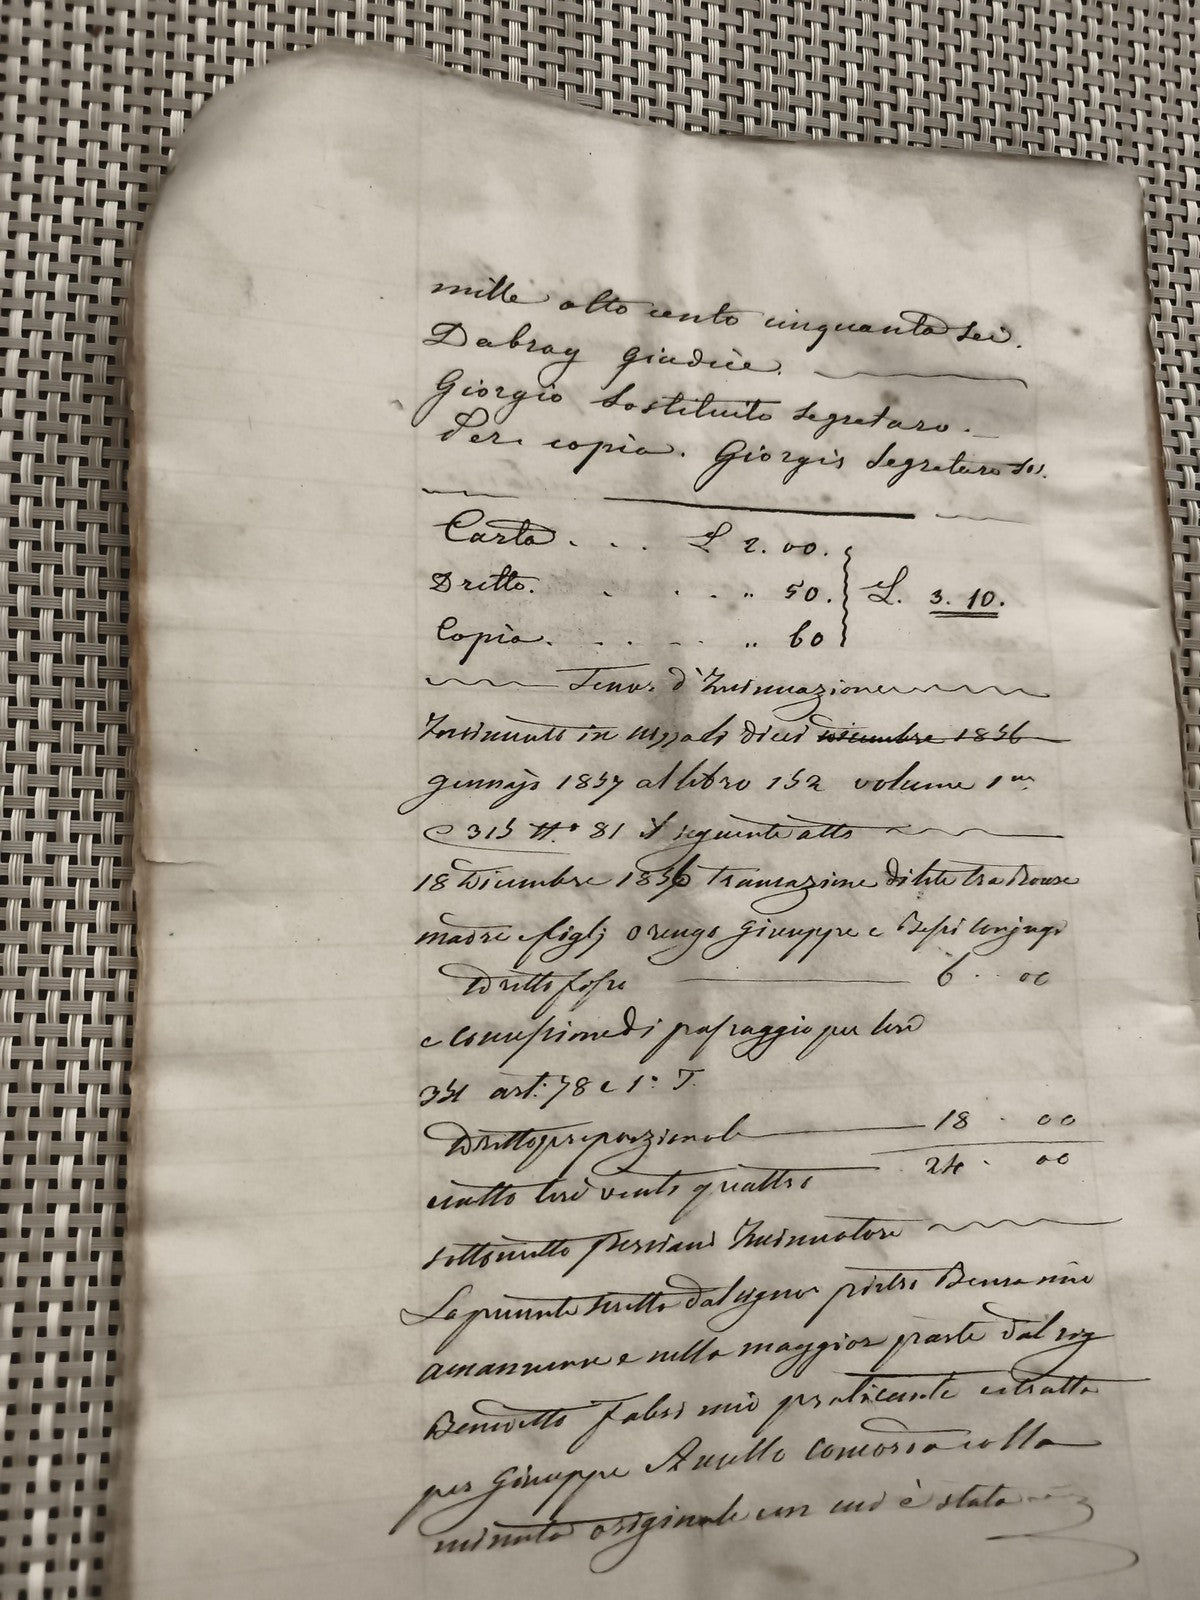 mille otto cento cinquanta sei.
Dabray giudice.
Giorgio sostituito segretaro.
Per copia. Giorgio segretaro sos.
Carta . . . L 2. 00.
Dritto. . . . . " 50. L. 3. 10.
Copia. . . . . " 60
Tenor d'Insinuazione
Insinuato in li dieci dicembre 1856
gennajo 1857 al libro 152 volume 1mo
C 315 N.° 81 il seguente atto
18 Dicembre 1856 transazione di lite tra
madre e figlj Orengo Giuseppe e conjugi
Dritto fisso 6. 00
e concessione di passaggio per lire
351 art: 78 c 1° T.
Dritto proporzionale 18. 00
24. 00
esatto lire venti quattro
sottoscritto Insinuatore
La presente scritta dal signor pietro mio
amanuense e nella maggior parte dal sig
Benedetto Fabri mio praticante estratta
per Giuseppe concorda colla
minuta originale con cui è stata